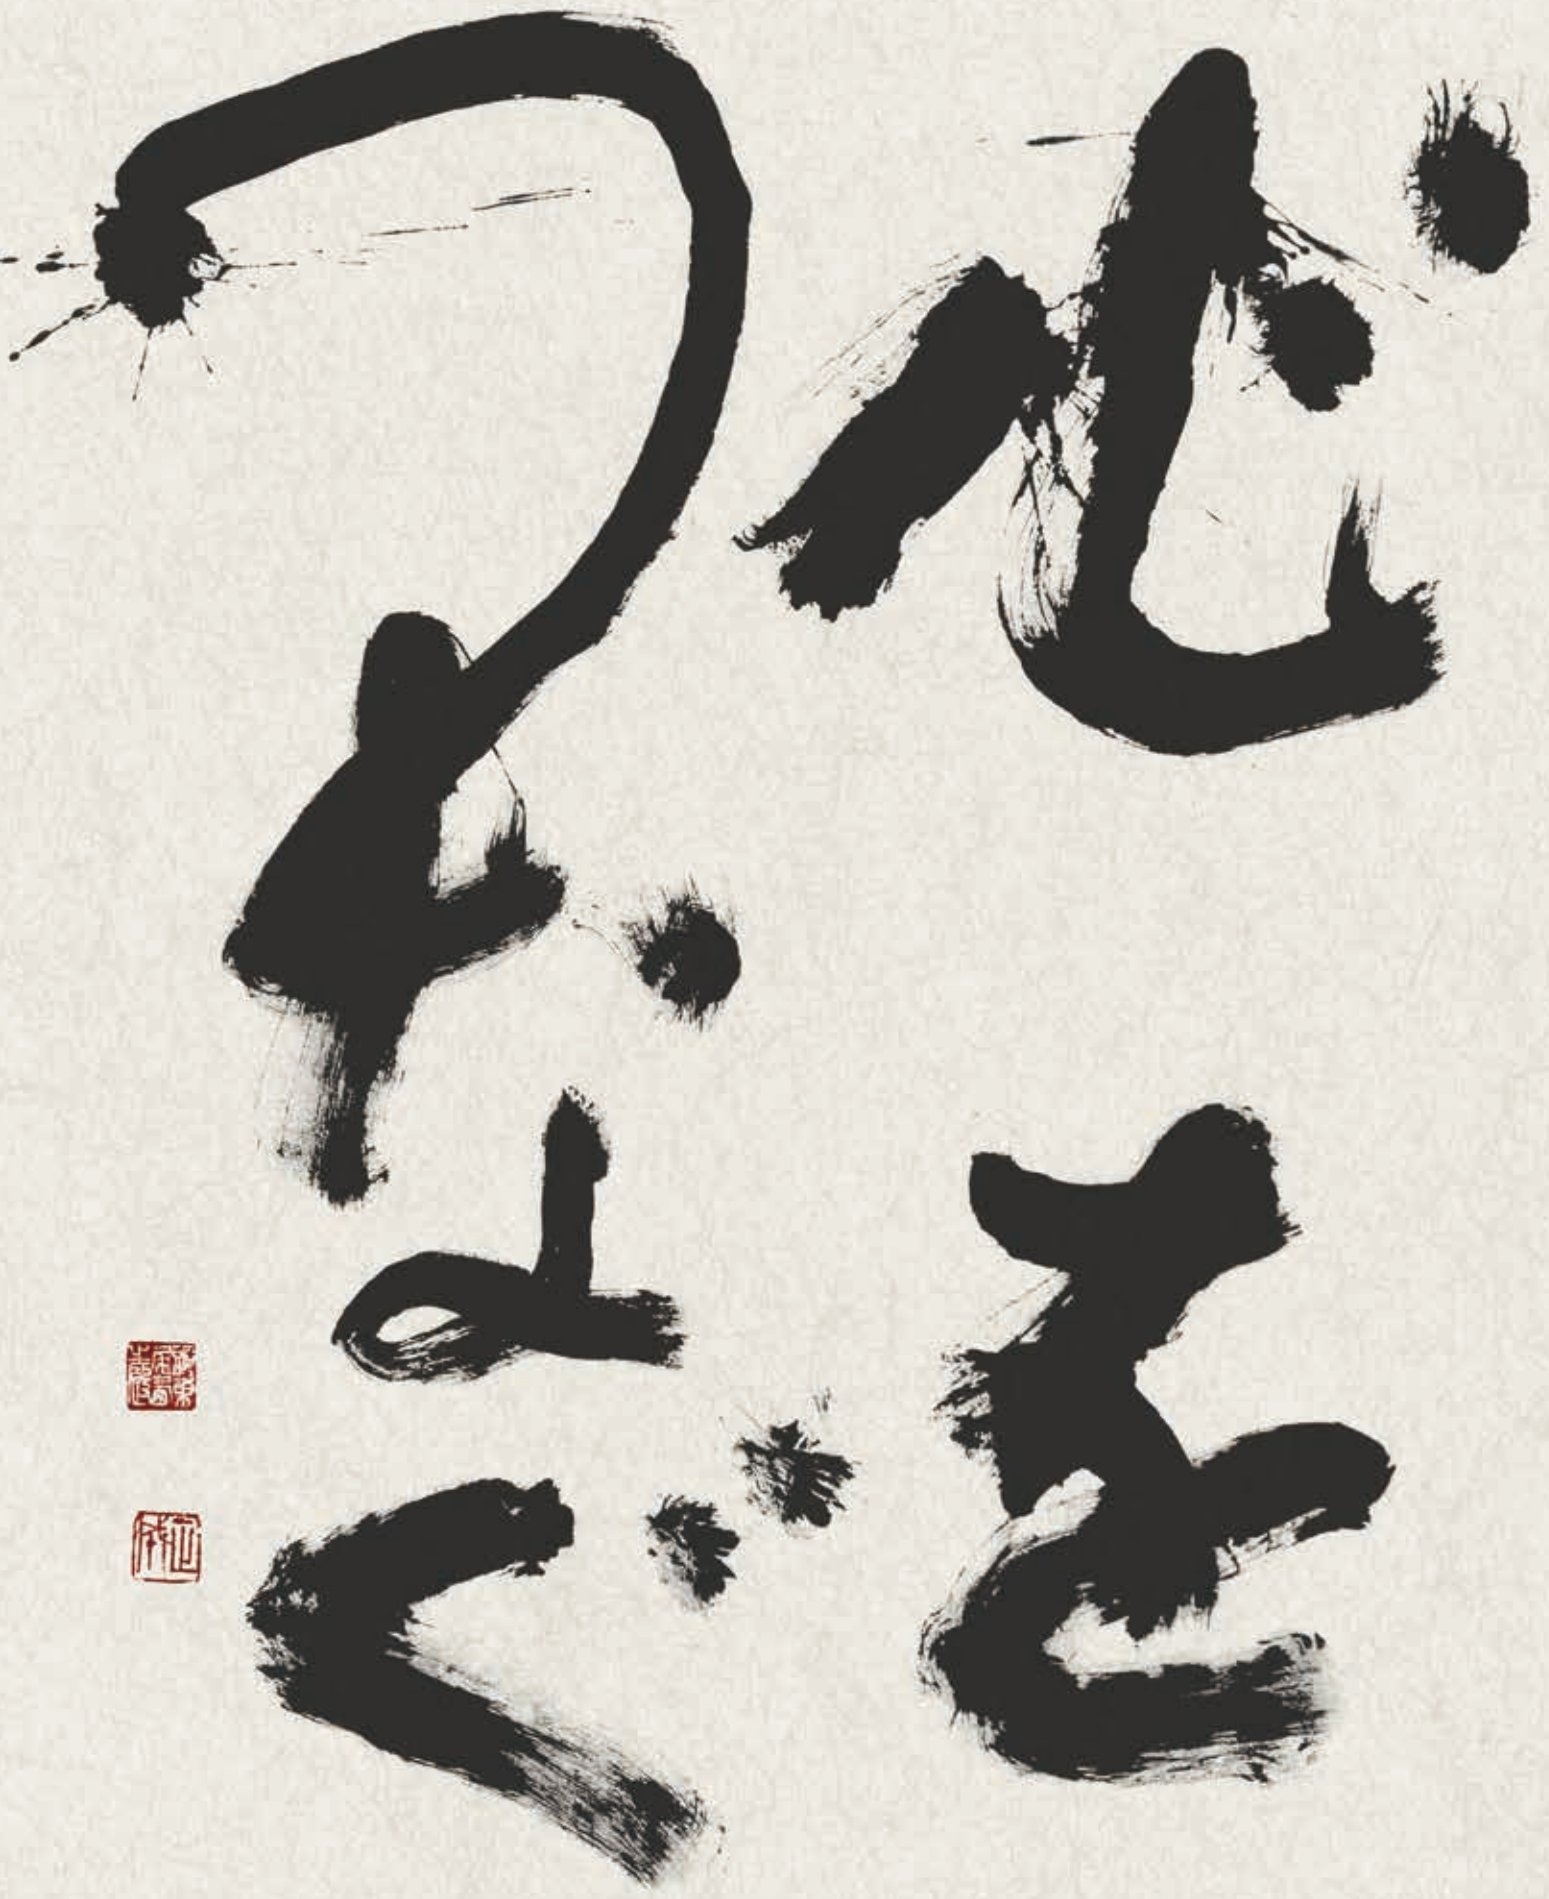 心を
つなぐ